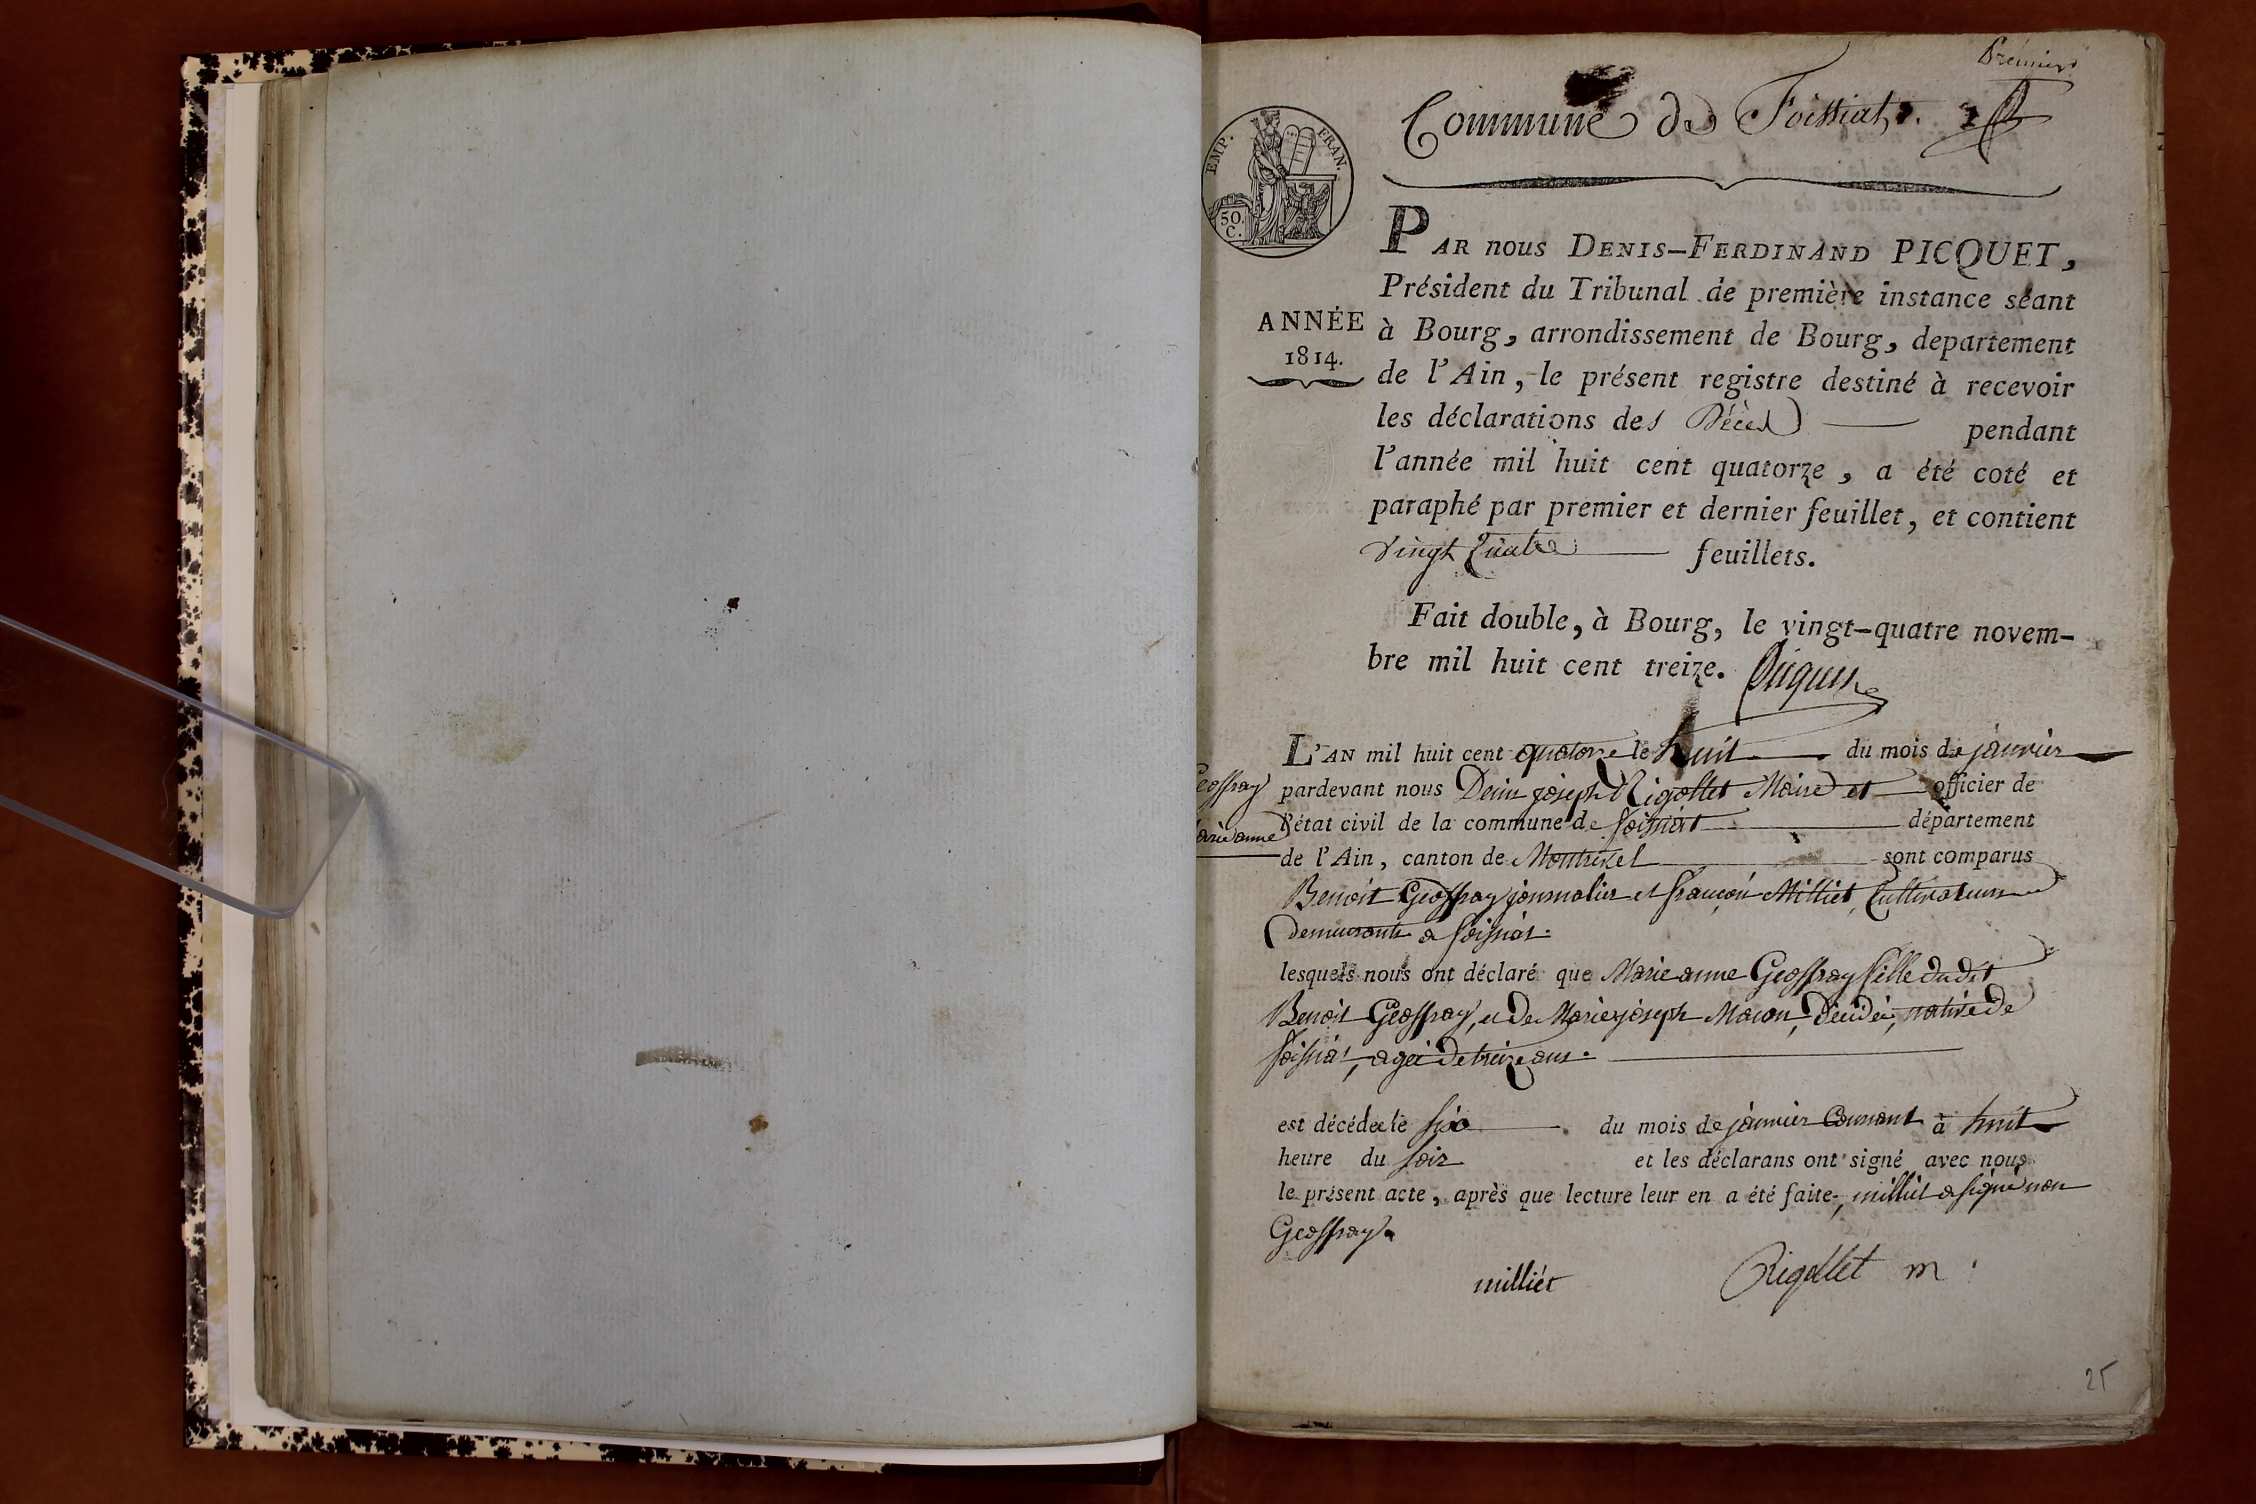 premier
Commune de Foissiat.
EMP. FRAN.
50. C.
PAR nous DENIS-FERDINAND PICQUET,
Président du Tribunal de première instance séant
ANNÉE
1814.
à Bourg, arrondissement de Bourg, departement
de l'Ain, le présent registre destiné à recevoir
les déclarations des Décès pendant
l'année mil huit cent quatorze, a été coté et
paraphé par premier et dernier feuillet, et contient
vingt quatre feuillets.
Fait double, à Bourg, le vingt-quatre novem-
bre mil huit cent treize. Picquet
L'AN mil huit cent quatorze le huit du mois de janvier
Geoffray
marie anne
pardevant nous Denis joseph Rigollet Maire et officier de
l'état civil de la commune de foissiat département
de l'Ain, canton de Montrevel sont comparus
Benoit Geoffray journalier et françois Milliet, Cultivateurs
demeurants a foissiat.
lesquels nous ont déclaré que Marie anne Geoffray fille dudit
Benoit Geoffray, et de Marie joseph Macon, décédée, native de
foissiat, agée de treize ans.
est décédée le six du mois de janvier Courant à huit
heure du soir et les déclarans ont signé avec nous
le présent acte, après que lecture leur en a été faite, milliet a signé non
Geoffray.
milliét Rigollet m
25